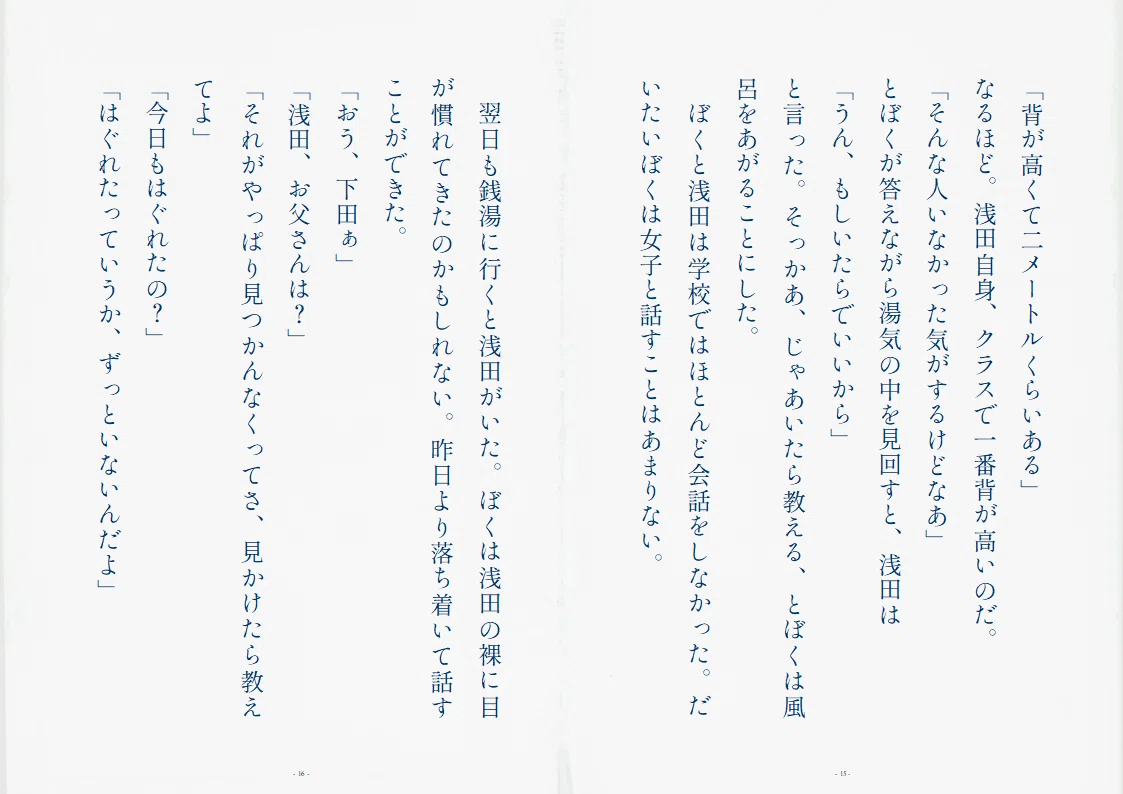 「背が高くて二メートルくらいある」
なるほど。浅田自身、クラスで一番背が高いのだ。
「そんな人いなかった気がするけどなあ」
とぼくが答えながら湯気の中を見回すと、浅田は
「うん、もしいたらでいいから」
と言った。そっかあ、じゃあいたら教える、とぼくは風
呂をあがることにした。
ぼくと浅田は学校ではほとんど会話をしなかった。だ
いたいぼくは女子と話すことはあまりない。
- 15 -
翌日も銭湯に行くと浅田がいた。ぼくは浅田の裸に目
が慣れてきたのかもしれない。昨日より落ち着いて話す
ことができた。
「おう、下田ぁ」
「浅田、お父さんは？」
「それがやっぱり見つかんなくってさ、見かけたら教え
てよ」
「今日もはぐれたの？」
「はぐれたっていうか、ずっといないんだよ」
- 16 -